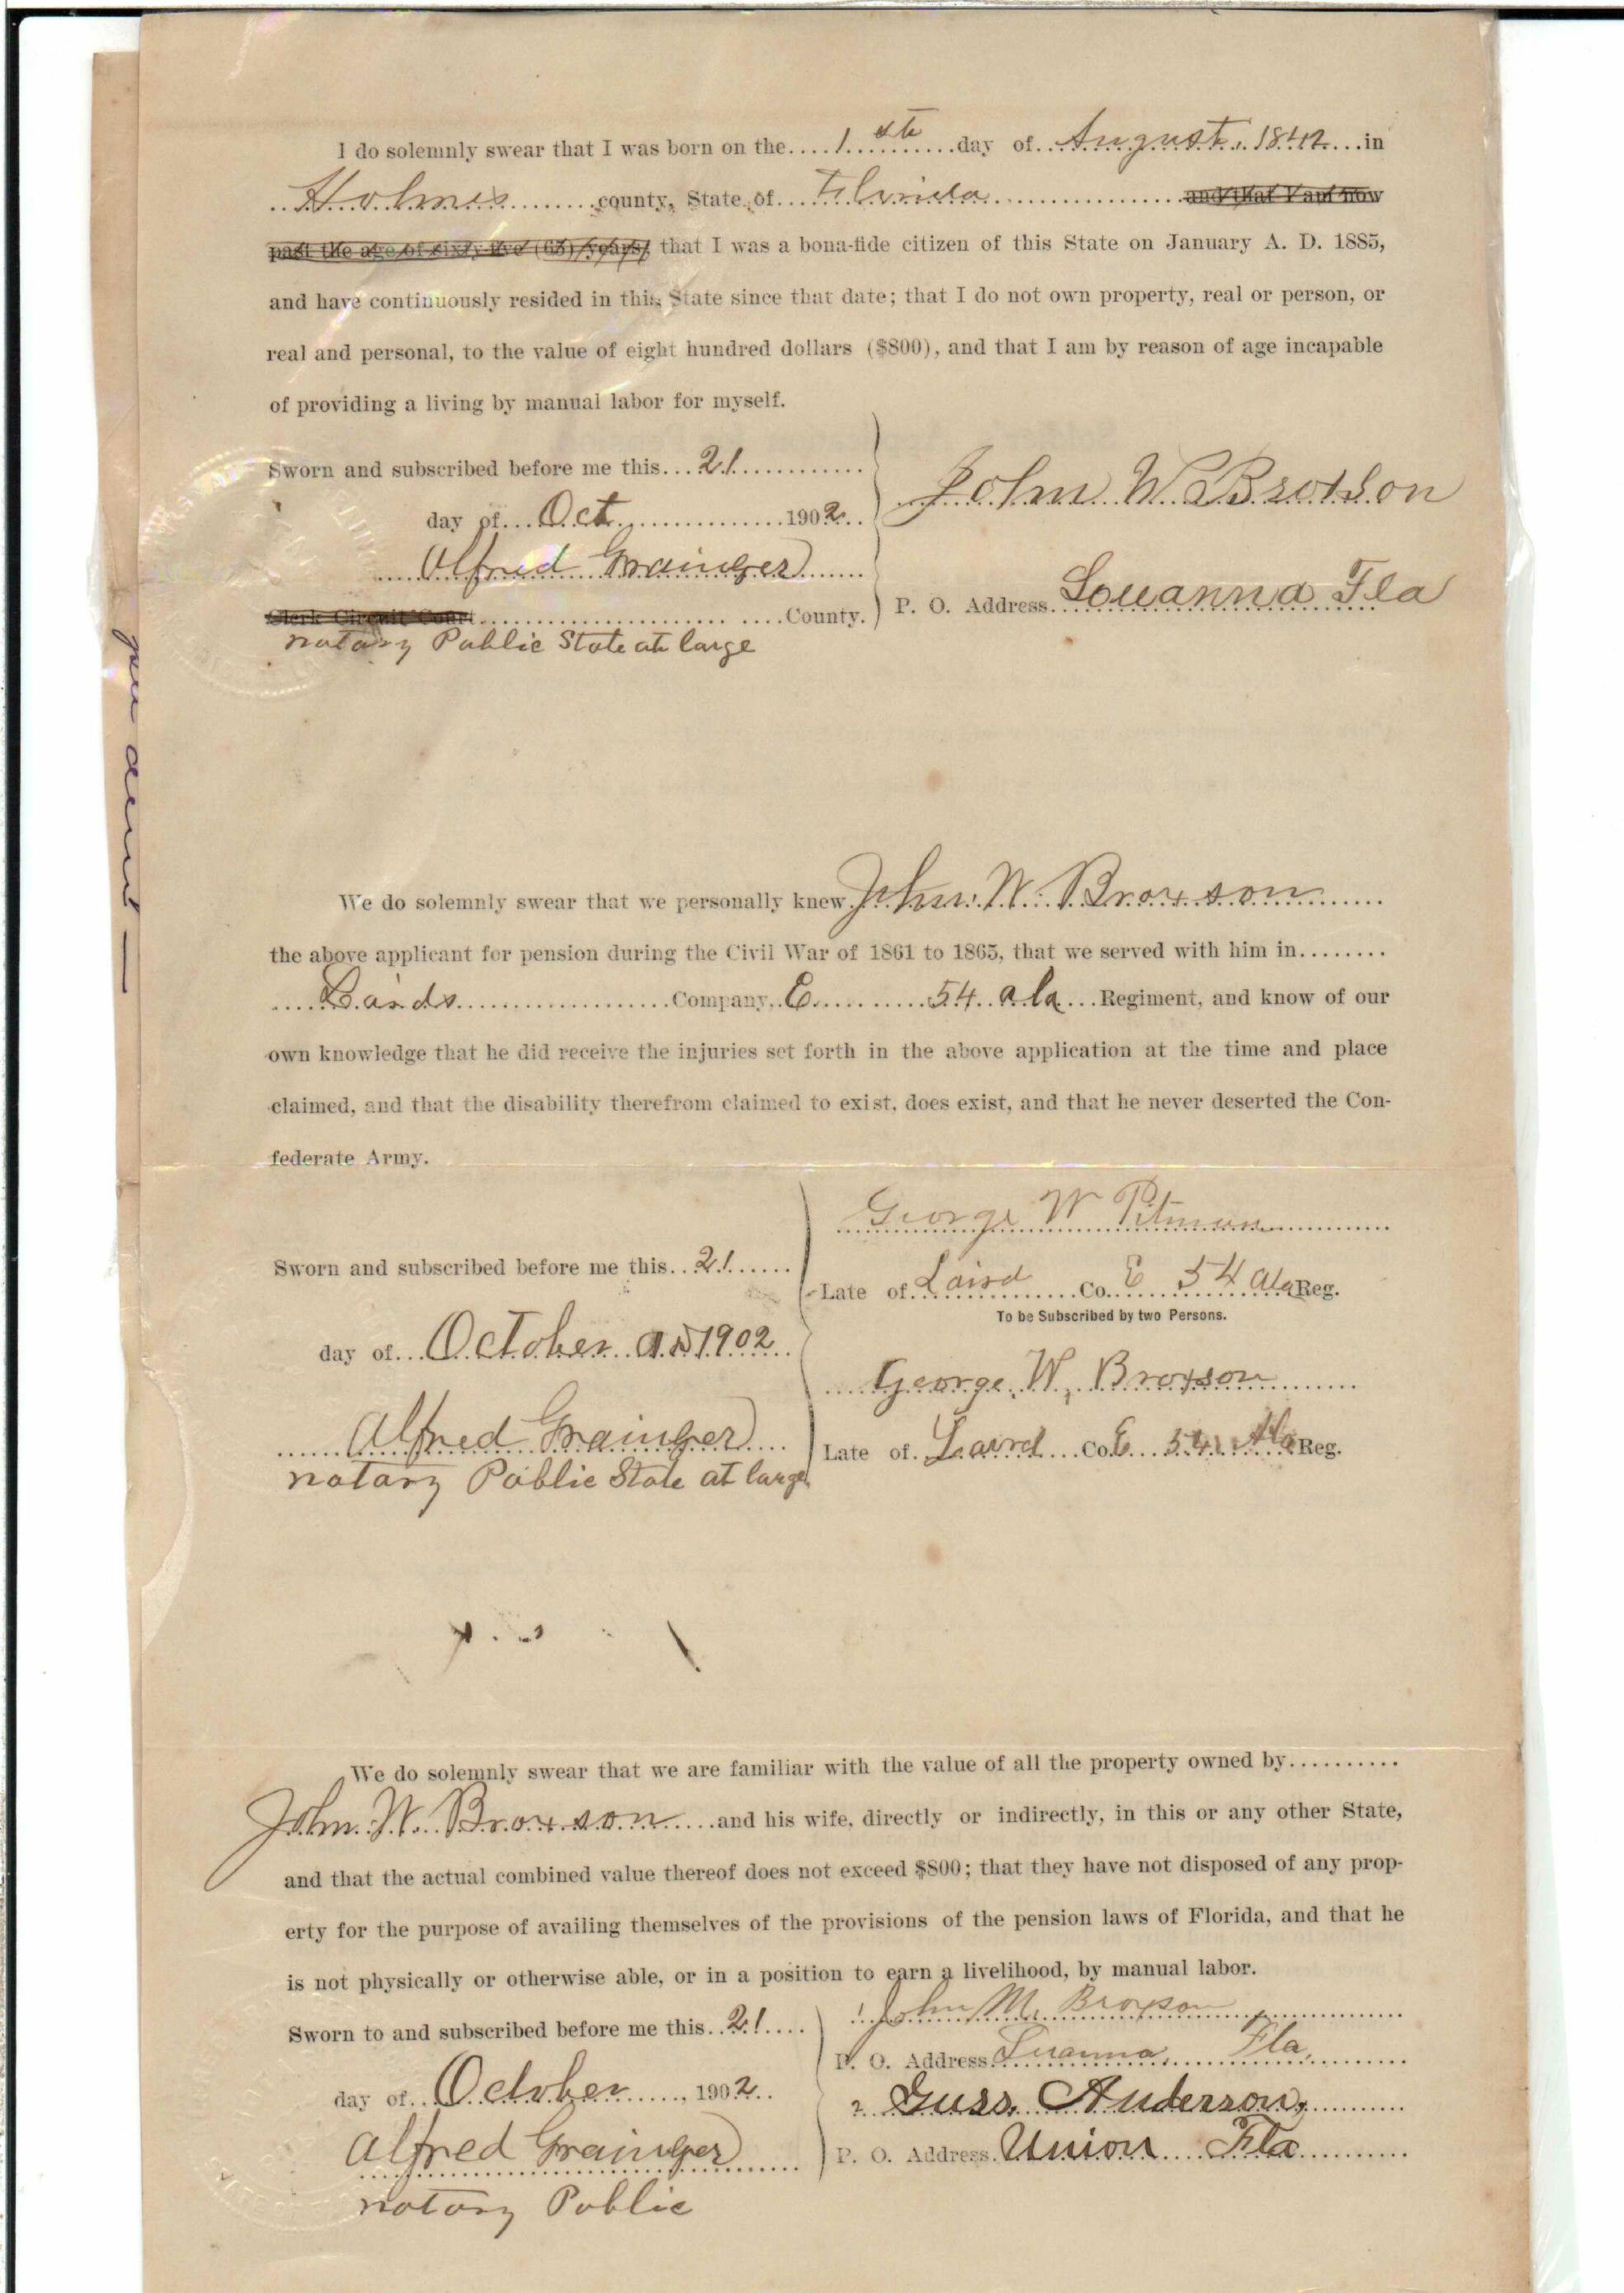 I do solemnly swear that I was born on the....1 ste....day of..August, 1842...in
Holmes........county, State of...Florida..............and that I am now
past the age of sixty-five (65) years, that I was a bona-fide citizen of this State on January A. D. 1885,
and have continuously resided in this State since that date; that I do not own property, real or person, or
real and personal, to the value of eight hundred dollars ($800), and that I am by reason of age incapable
of providing a living by manual labor for myself.
Sworn and subscribed before me this...21............
day of...Oct...............1902..
John W Broxson
Alfred Grainger
Clerk Circuit Court........................ ....County.
P. O. Address.Louanna Fla
notary Public State at large
We do solemnly swear that we personally knew John W. Broxson......
the above applicant for pension during the Civil War of 1861 to 1865, that we served with him in........
....Lairds................Company,.E........54 ala...Regiment, and know of our
own knowledge that he did receive the injuries set forth in the above application at the time and place
claimed, and that the disability therefrom claimed to exist, does exist, and that he never deserted the Con-
federate Army.
George W Pitman
Sworn and subscribed before me this..21......
Late of.Laird......Co.E 54 Ala Reg.
To be Subscribed by two Persons.
day of...October A.D 1902..
George, W, Broxson
Alfred Grainger
Late of.Laird...Co.E...54 Ala Reg.
notary Public State at large
We do solemnly swear that we are familiar with the value of all the property owned by..........
John W. Broxson....and his wife, directly or indirectly, in this or any other State,
and that the actual combined value thereof does not exceed $800; that they have not disposed of any prop-
erty for the purpose of availing themselves of the provisions of the pension laws of Florida, and that he
is not physically or otherwise able, or in a position to earn a livelihood, by manual labor.
1 John M. Broxson
Sworn to and subscribed before me this..21....
P. O. Address.Luanna, Fla,
day of..October....., 1902..
2 Guss. Anderson,
Alfred Grainger
P. O. Address.Union Fla
notary Public